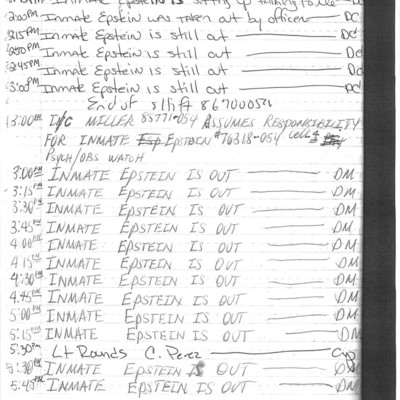 Inmate Epstein is sitting up talking to me — DC
2:00PM Inmate Epstein was taken out by officer — DC
2:15PM Inmate Epstein is still out — DC
2:30PM Inmate Epstein is still out — DC
2:45PM Inmate Epstein is still out — DC
3:00PM Inmate Epstein is still out — DC
End of shift
3:00PM I/C MILLER 85771-054 ASSUMES RESPONSIBILITY
FOR INMATE EPSTEIN #76318-054 cell 4
PSYCH/OBS WATCH
3:00PM INMATE EPSTEIN IS OUT — DM
3:15PM INMATE EPSTEIN IS OUT — DM
3:30PM INMATE EPSTEIN IS OUT — DM
3:45PM INMATE EPSTEIN IS OUT — DM
4:00PM INMATE EPSTEIN IS OUT — DM
4:15PM INMATE EPSTEIN IS OUT — DM
4:30PM INMATE EPSTEIN IS OUT — DM
4:45PM INMATE EPSTEIN IS OUT — DM
5:00PM INMATE EPSTEIN IS OUT — DM
5:15PM INMATE EPSTEIN IS OUT — DM
5:30PM Lt Rounds C. Perez —
5:30PM INMATE EPSTEIN IS OUT — DM
5:45PM INMATE EPSTEIN IS OUT — DM